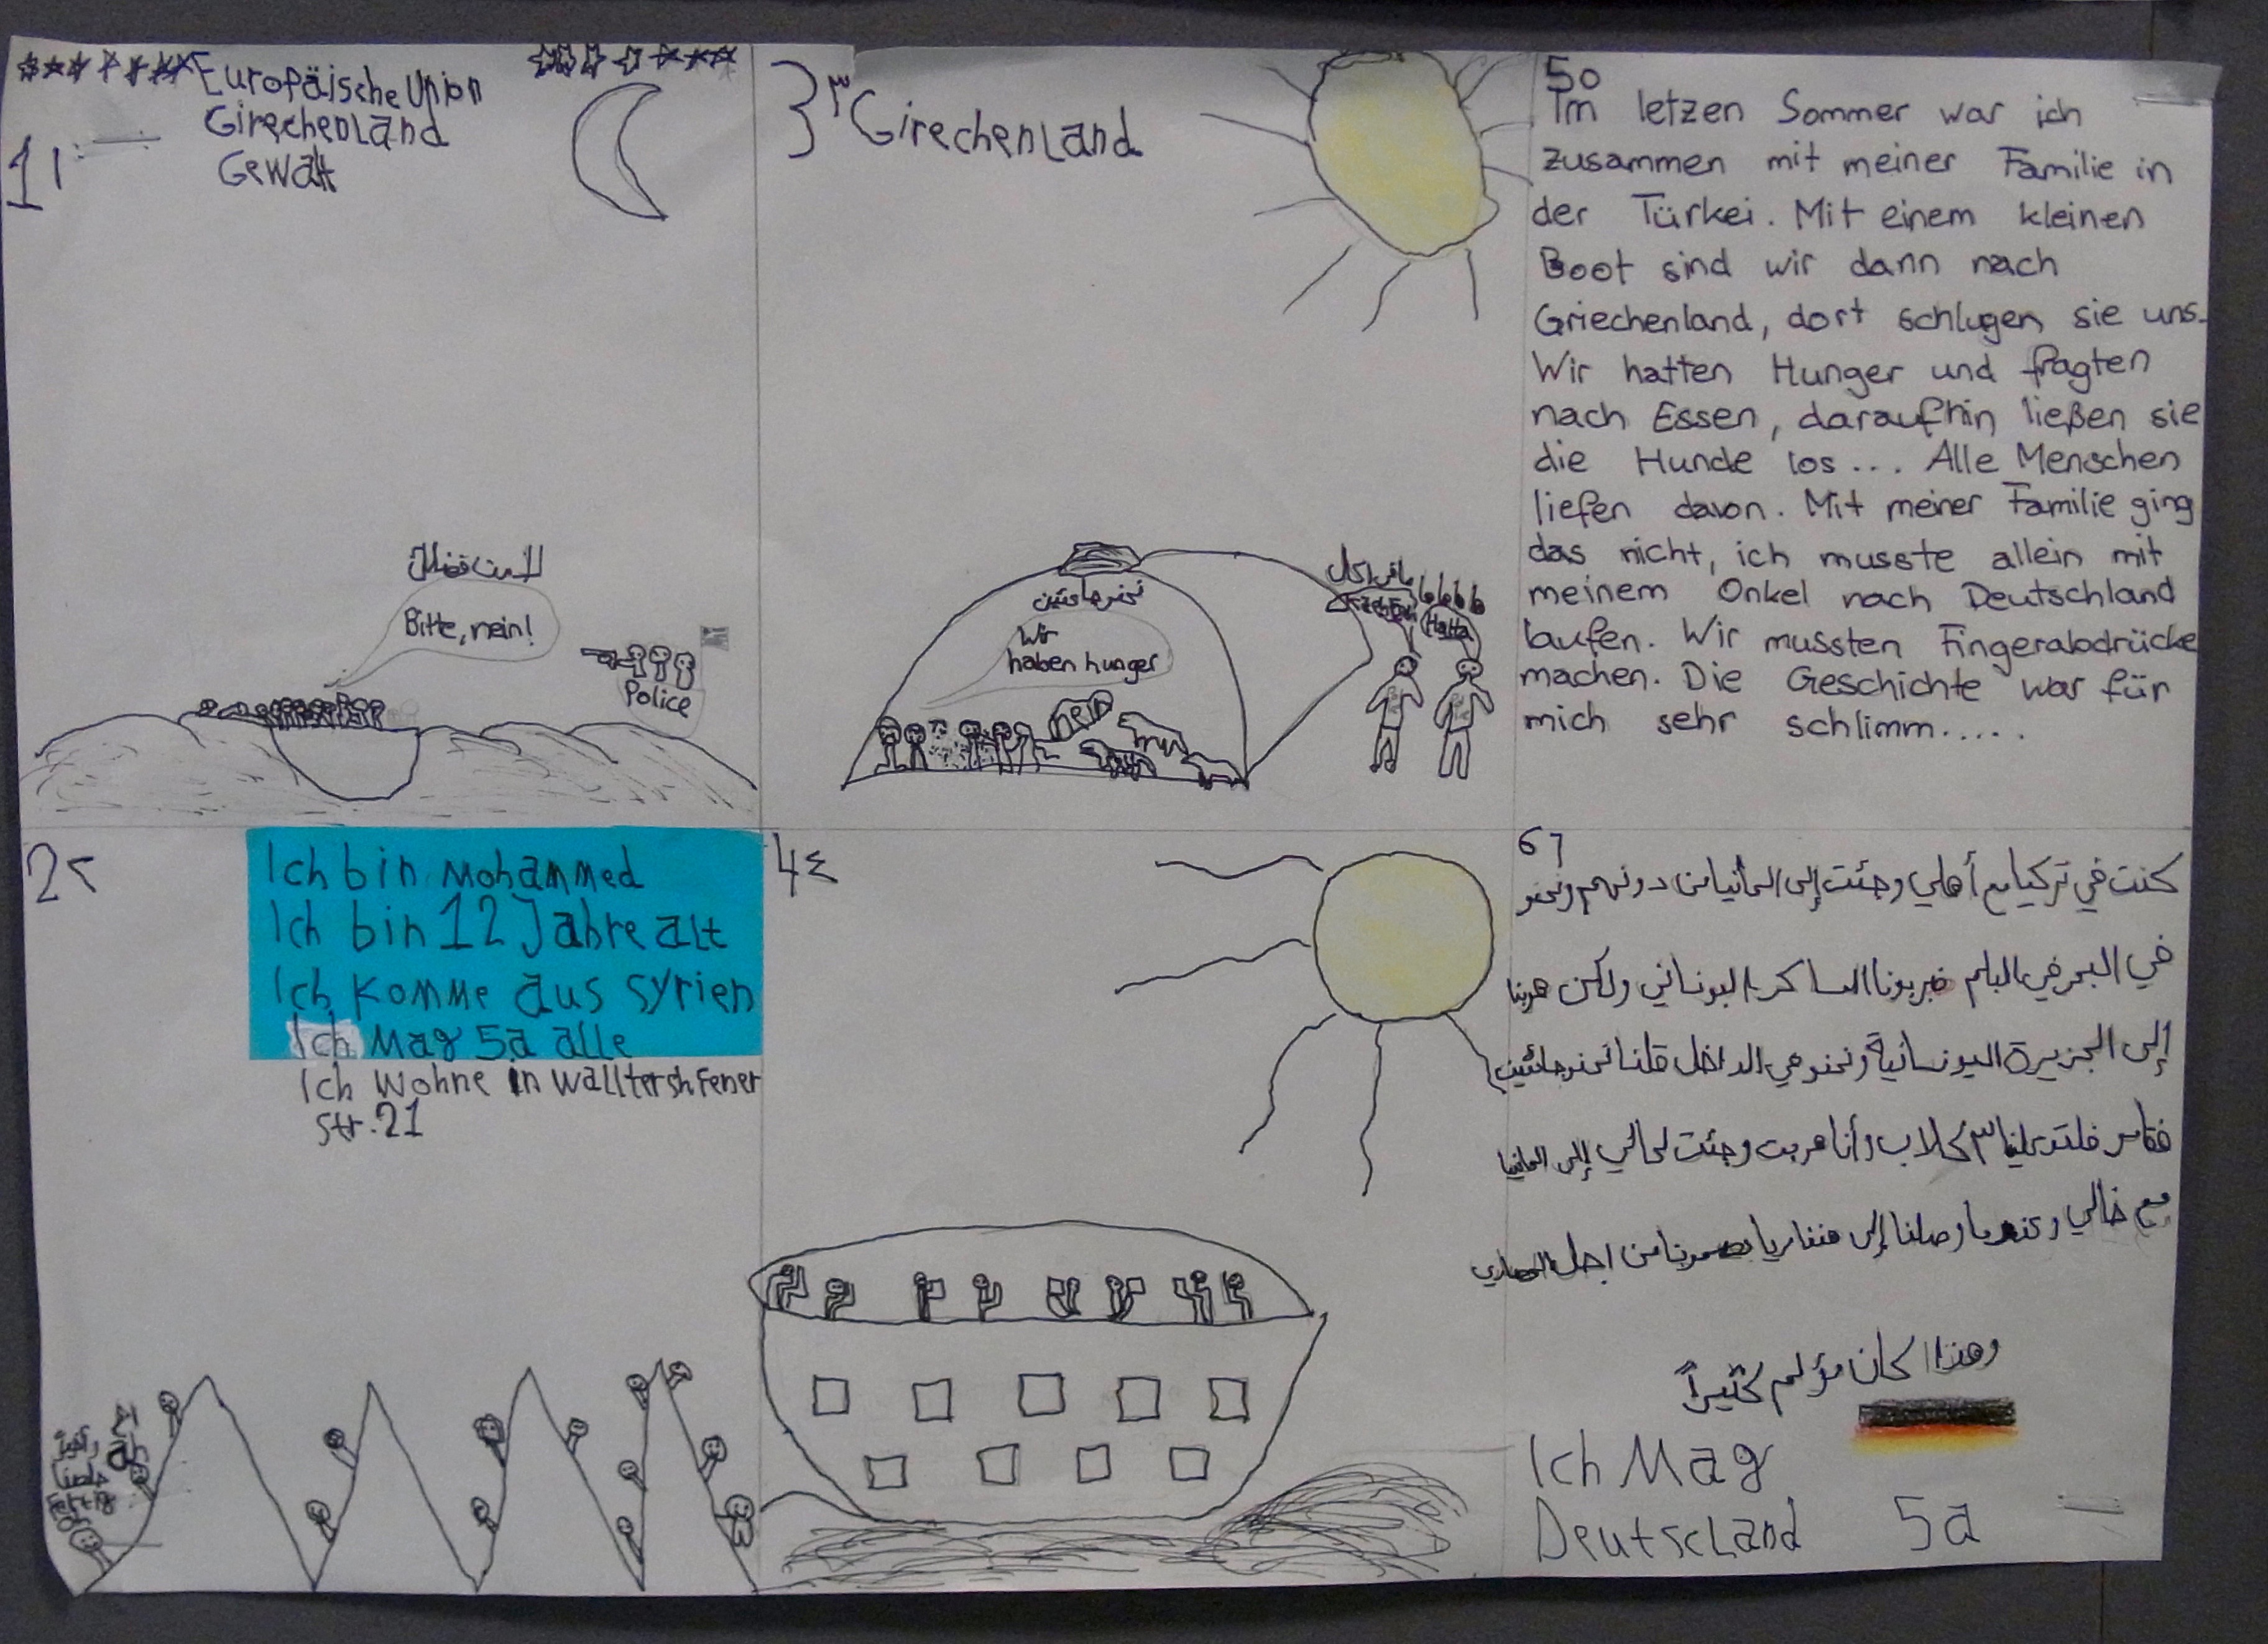 Europäische Union
Girechenland
Gewalt
1 ١
Bitte, nein!
Police
2 ٢
Ich bin Mohammed
Ich bin 12 Jahre alt
Ich komme aus Syrien
Ich Mag 5a alle
Ich wohne in walltershfener
Str. 21
3 ٣
Girechenland
نحن جائعين
Wir
haben hunger
nein
ما في اكل
هاهاهاها
HaHa
4 ٤
5 ٥
Im letzen Sommer war ich
zusammen mit meiner Familie in
der Türkei. Mit einem kleinen
Boot sind wir dann nach
Griechenland, dort schlugen sie uns.
Wir hatten Hunger und fragten
nach Essen, daraufhin ließen sie
die Hunde los... Alle Menschen
liefen davon. Mit meiner Familie ging
das nicht, ich musste allein mit
meinem Onkel nach Deutschland
laufen. Wir mussten Fingerabdrücke
machen. Die Geschichte war für
mich sehr schlimm.....
6 ٦
كنت في تركيا مع أهلي وجئت إلى المانيا من دونهم ونحنو
في البحر في البلم ضربونا العساكر اليوناني ولكن هربنا
إلى الجزيرة اليونانية ونحنو في الداخل قلنا نحنو جائعين
فلتو علينا ٣ كلاب وأنا هربت وجئت لحالي إلى المانيا
مع خالي وعندما وصلنا إلى بصمونا من اجل
وهذا كان مؤلم كثيراً
Ich Mag
Deutscland 5a